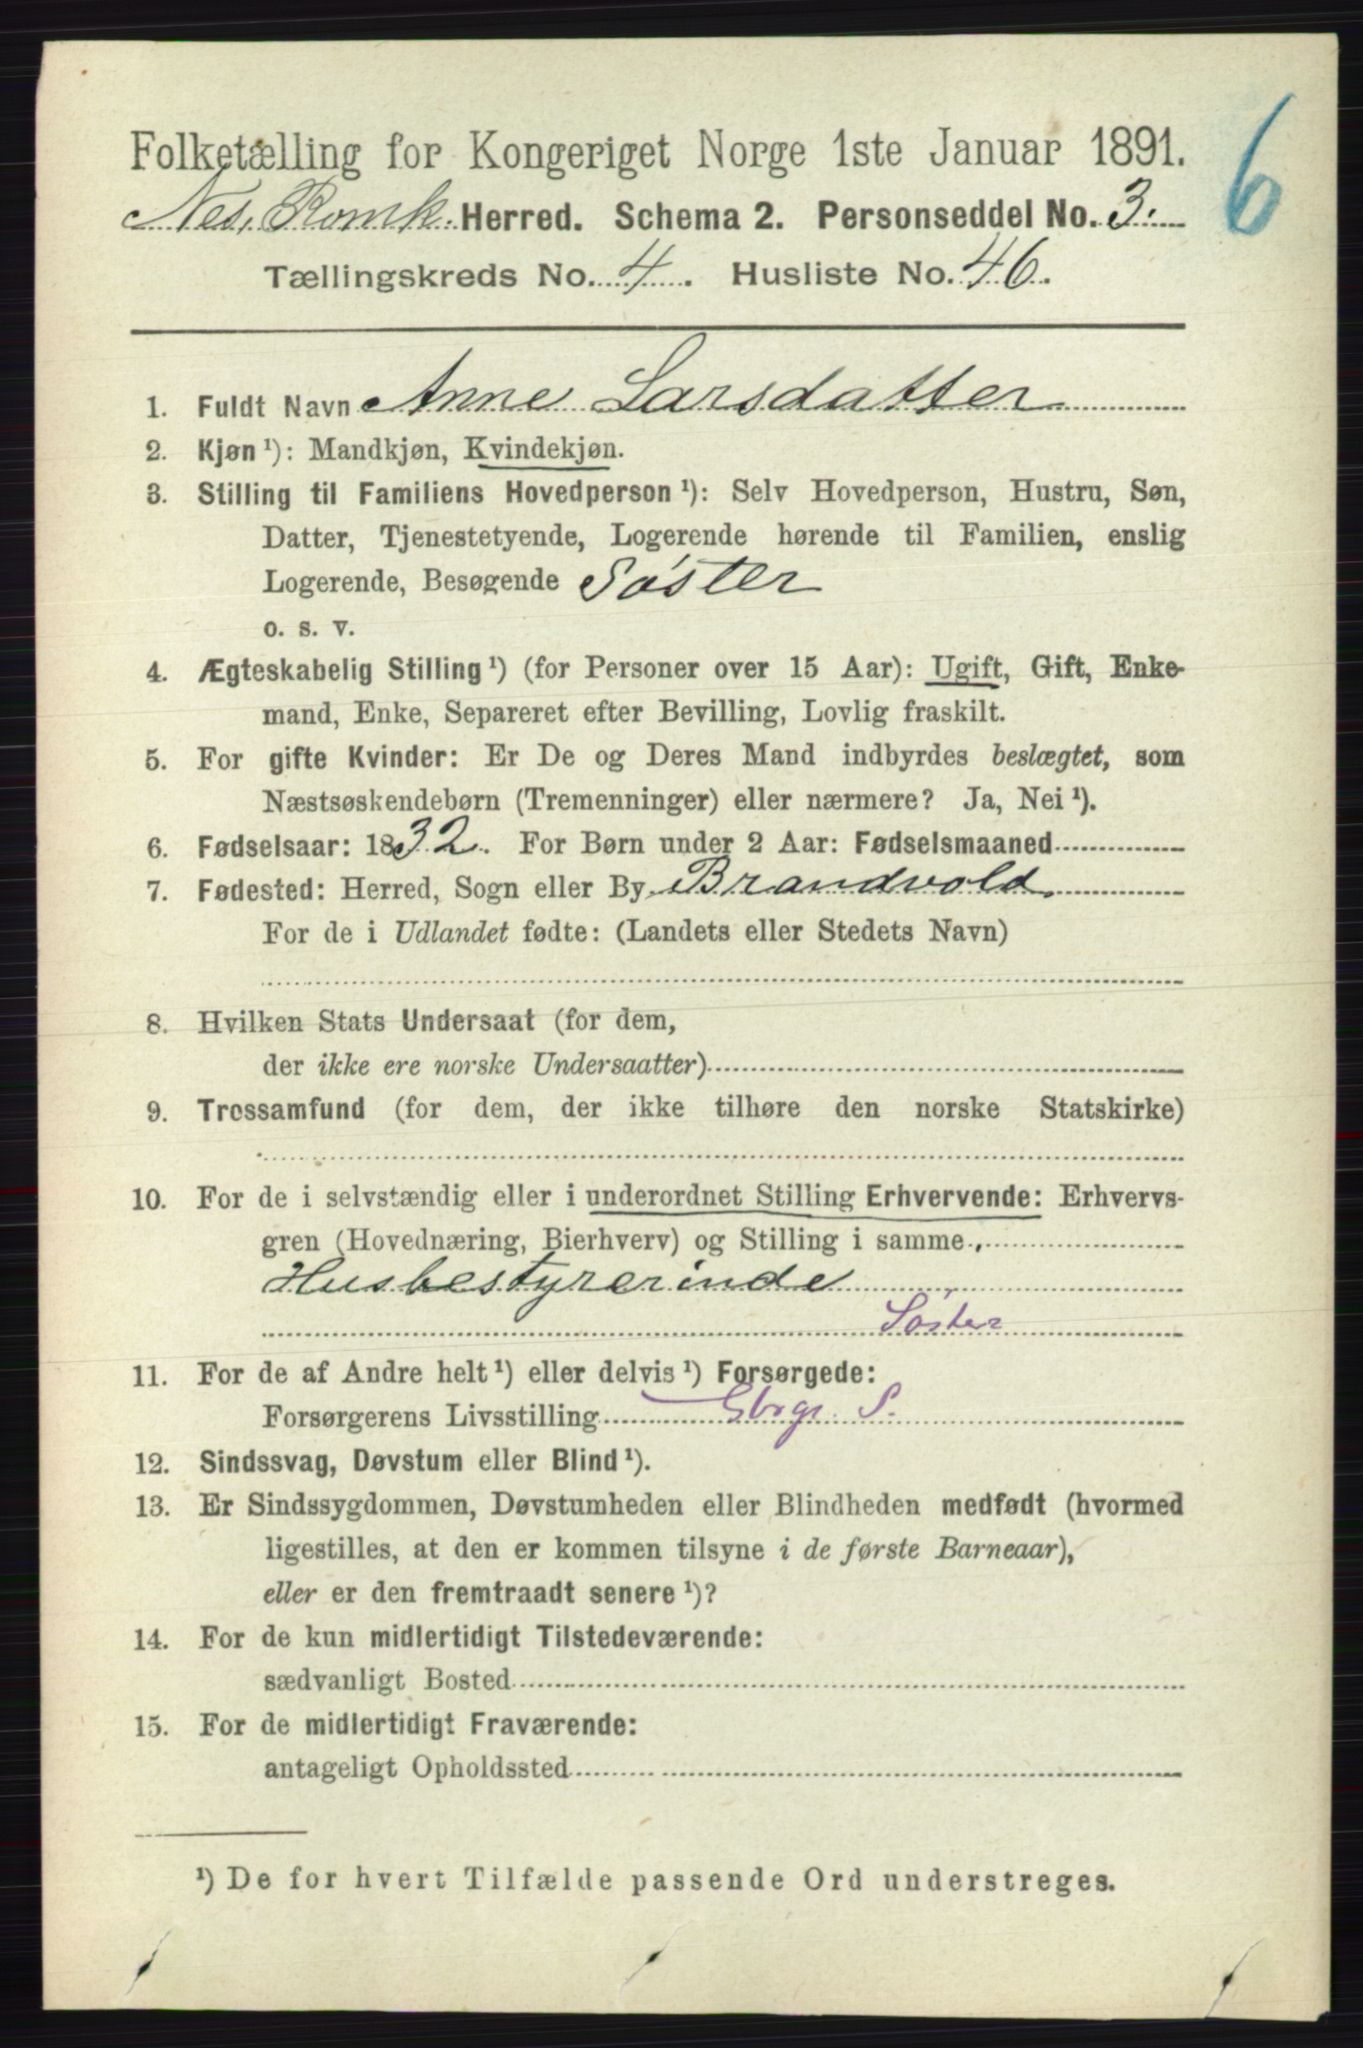 Folketælling for Kongeriget Norge 1ste Januar 1891.
6
Nes, Romk. Herred. Schema 2. Personseddel No. 3.
Tællingskreds No. 4. Husliste No. 46.
1. Fuldt Navn Anne Larsdatter
2. Kjøn ¹): Mandkjøn, Kvindekjøn.
3. Stilling til Familiens Hovedperson ¹): Selv Hovedperson, Hustru, Søn,
Datter, Tjenestetyende, Logerende hørende til Familien, enslig
Logerende, Besøgende Søster
o. s. v.
4. Ægteskabelig Stilling ¹) (for Personer over 15 Aar): Ugift, Gift, Enke-
mand, Enke, Separeret efter Bevilling, Lovlig fraskilt.
5. For gifte Kvinder: Er De og Deres Mand indbyrdes beslægtet, som
Næstsøskendebørn (Tremenninger) eller nærmere? Ja, Nei ¹).
6. Fødselsaar: 1832. For Børn under 2 Aar: Fødselsmaaned
7. Fødested: Herred, Sogn eller By Brandvold.
For de i Udlandet fødte: (Landets eller Stedets Navn)
8. Hvilken Stats Undersaat (for dem,
der ikke ere norske Undersaatter)
9. Trossamfund (for dem, der ikke tilhøre den norske Statskirke)
10. For de i selvstændig eller i underordnet Stilling Erhvervende: Erhvervs-
gren (Hovednæring, Bierhverv) og Stilling i samme
Husbestyrerinde
Søster
11. For de af Andre helt ¹) eller delvis ¹) Forsørgede:
Forsørgerens Livsstilling Gbrgr. S.
12. Sindssvag, Døvstum eller Blind ¹).
13. Er Sindssygdommen, Døvstumheden eller Blindheden medfødt (hvormed
ligestilles, at den er kommen tilsyne i de første Barneaar),
eller er den fremtraadt senere ¹)?
14. For de kun midlertidigt Tilstedeværende:
sædvanligt Bosted
15. For de midlertidigt Fraværende:
antageligt Opholdssted
¹) De for hvert Tilfælde passende Ord understreges.